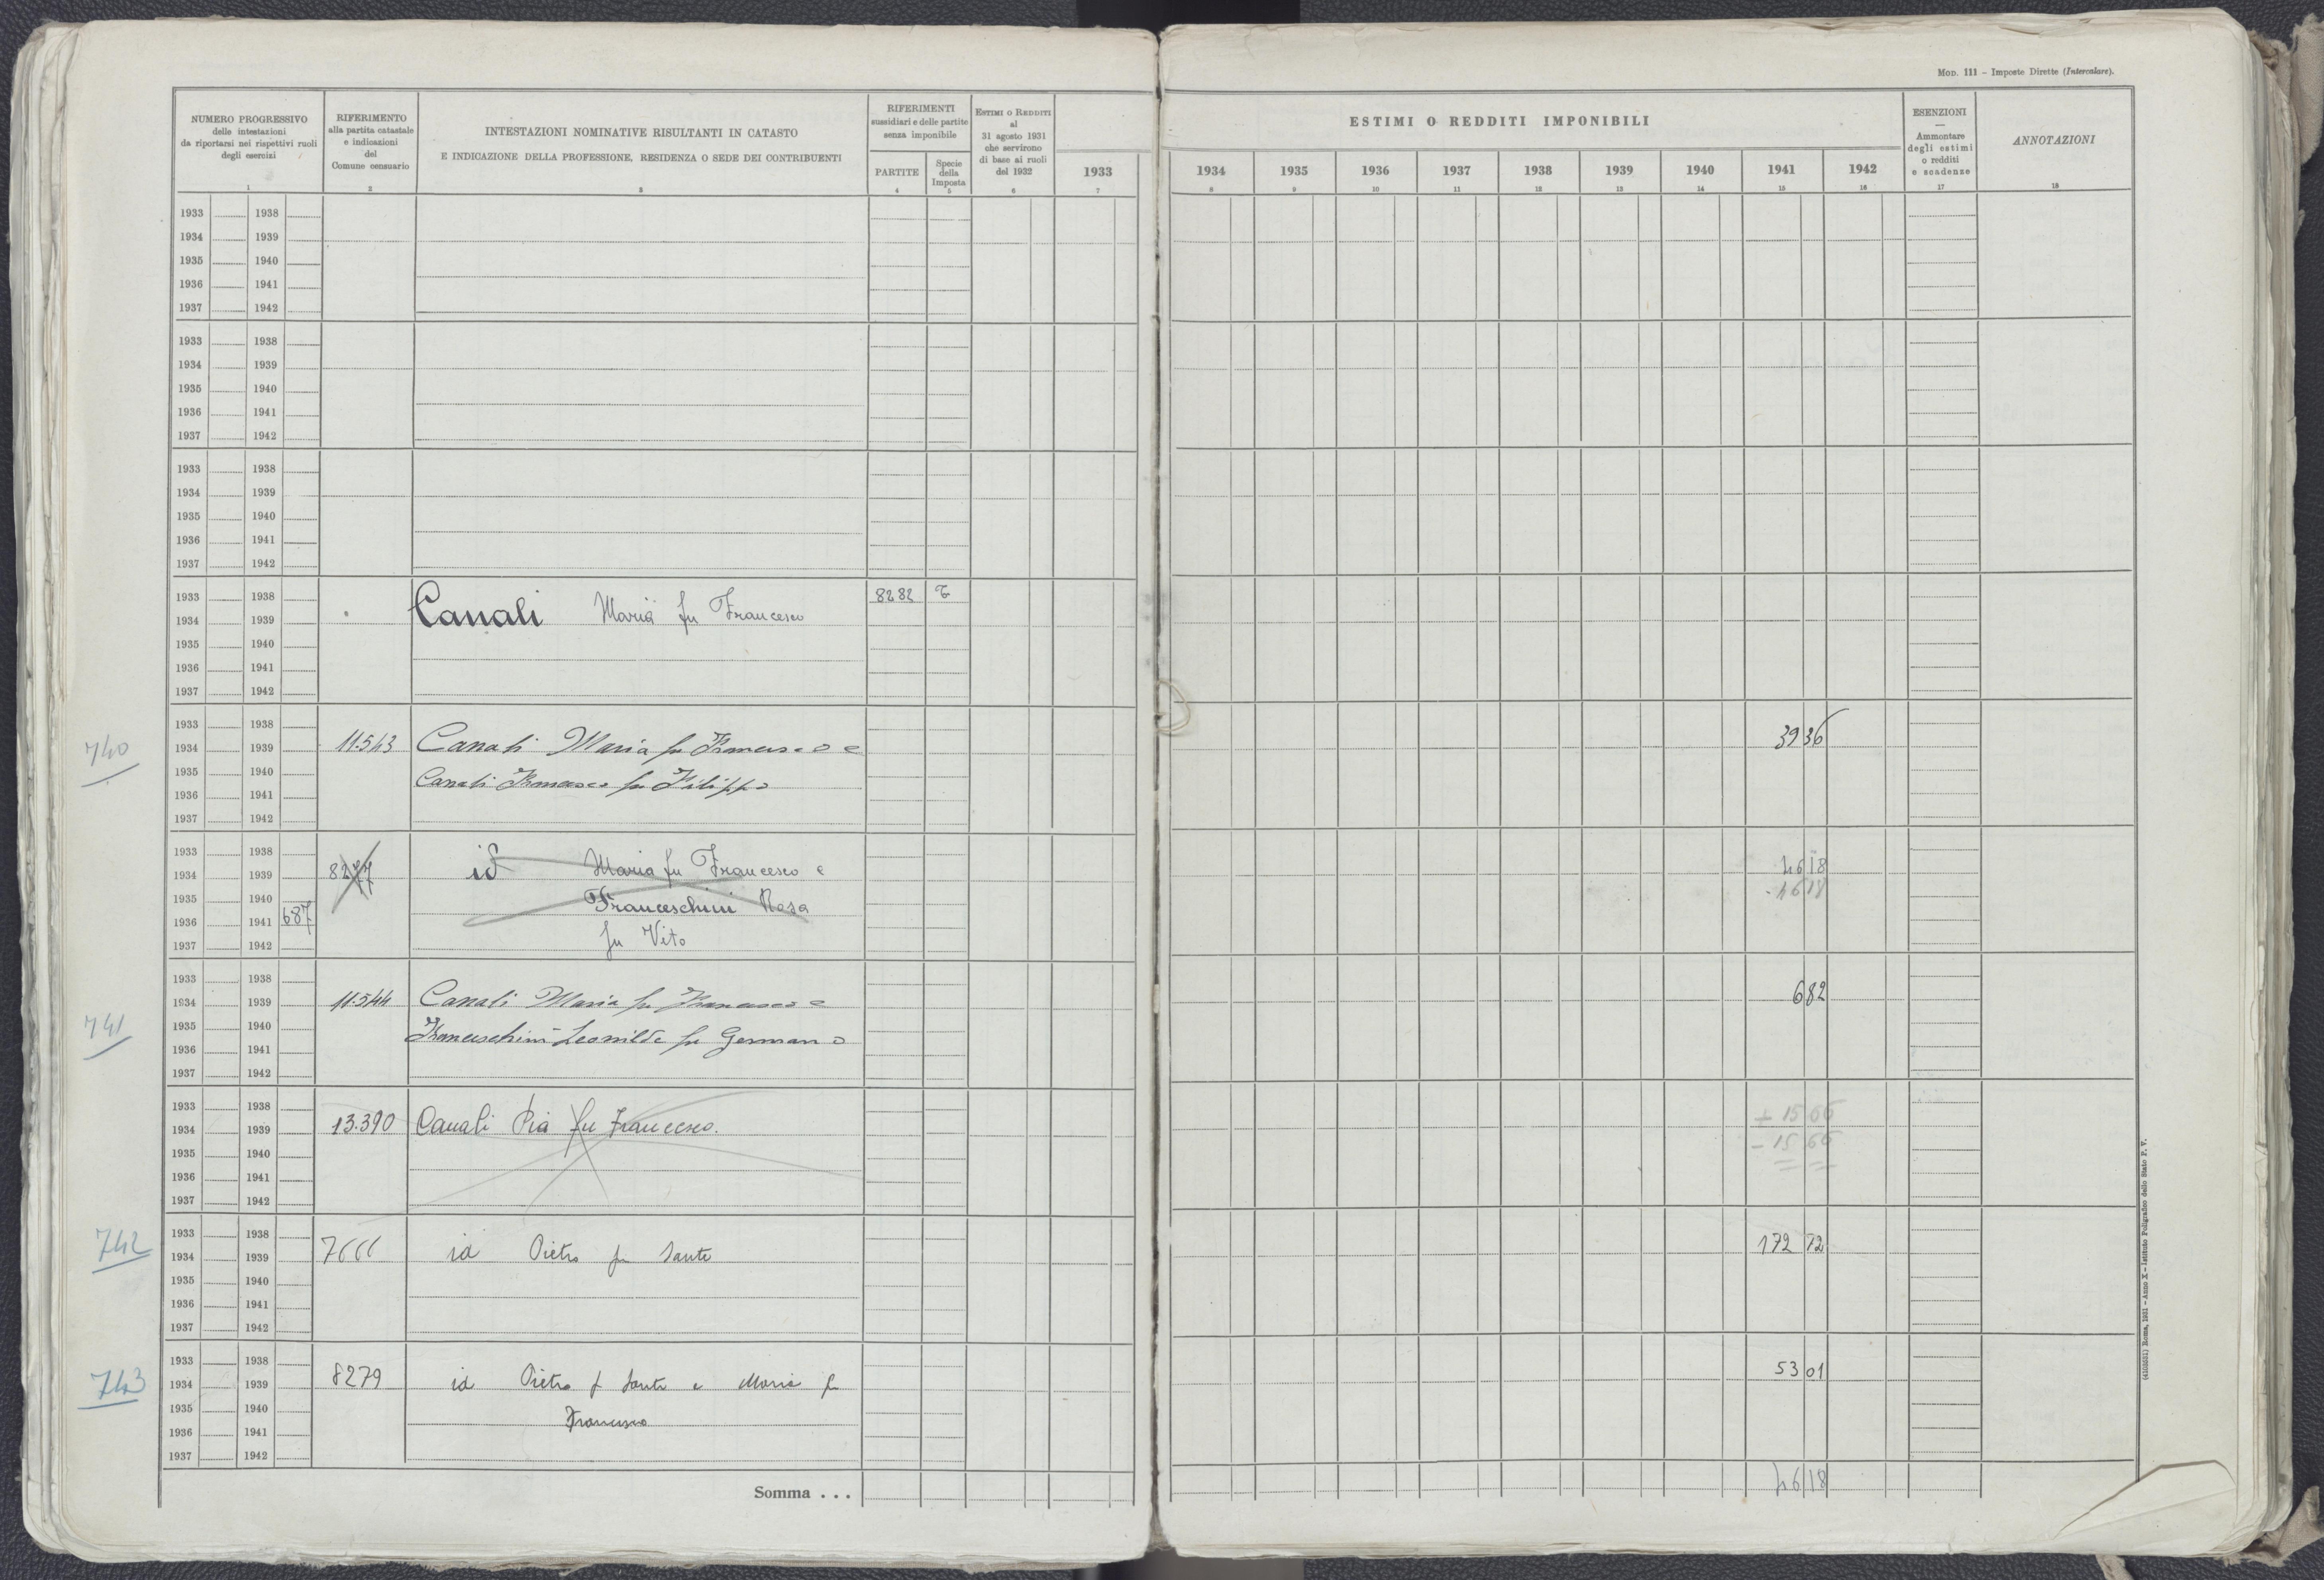 MOD. 111 – Imposte Dirette (Intercalare).
NUMERO PROGRESSIVO
delle intestazioni
da riportarsi nei rispettivi ruoli
degli esercizi
1
RIFERIMENTO
alla partita catastale
e indicazioni
del
Comune censuario
2
INTESTAZIONI NOMINATIVE RISULTANTI IN CATASTO
E INDICAZIONE DELLA PROFESSIONE, RESIDENZA O SEDE DEI CONTRIBUENTI
3
RIFERIMENTI
sussidiari e delle partite
senza imponibile
PARTITE
4
Specie
della
Imposta
5
ESTIMI O REDDITI
al
31 agosto 1931
che servirono
di base ai ruoli
del 1932
6
1933
7
ESTIMI O REDDITI IMPONIBILI
1934 1935 1936 1937 1938 1939 1940 1941 1942
8 9 10 11 12 13 14 15 16
ESENZIONI
—
Ammontare
degli estimi
o redditi
e scadenze
17
ANNOTAZIONI
18
1933 1938
1934 1939
1935 1940
1936 1941
1937 1942
1933 1938
1934 1939
1935 1940
1936 1941
1937 1942
1933 1938
1934 1939
1935 1940
1936 1941
1937 1942
1933 1938 8282 T
1934 1939 Canali Maria fu Francesco
1935 1940
1936 1941
1937 1942
1933 1938
740 1934 1939 11.543 Canali Maria fu Francesco e 39 36
1935 1940 Canali Francesco fu Filippo
1936 1941
1937 1942
1933 1938
1934 1939 8277 id Maria fu Francesco e 46 18
1935 1940 Franceschini Rosa - 46 18
1936 1941 687
1937 1942 fu Vito
1933 1938
1934 1939 11.544 Canali Maria fu Francesco e 6 82
741 1935 1940 Franceschini Leonilde fu Germano
1936 1941
1937 1942
1933 1938 + 15 66
1934 1939 13.390 Canali Pia fu Francesco. - 15 66
1935 1940
1936 1941
1937 1942
742 1933 1938
1934 1939 7666 id Pietro fu Sante 172 72
1935 1940
1936 1941
1937 1942
1933 1938
743 1934 1939 8279 id Pietro f Sante e Maria fu 53 01
1935 1940 Francesco
1936 1941
1937 1942
Somma . . . 46 18
(4103631) Roma, 1931 – Anno X – Istituto Poligrafico dello Stato P. V.